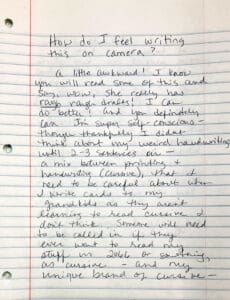 How do I feel writing
this on camera?
A little awkward! I know
you will read some of this and
say, wow, she really has
rough rough drafts! I can
do better! and you definitely
can. I'm super self-conscious -
though thankfully I didn't
think about my weird handwriting
until 2-3 sentences in -
a mix between printing &
handwriting (cursive), that I
need to be careful about when
I write cards to my
grandkids as they aren't
learning to read cursive I
don't think. Someone will need
to be called in if they
ever want to read my
stuff in 2066 or something,
as cursive - and my
unique brand of cursive -